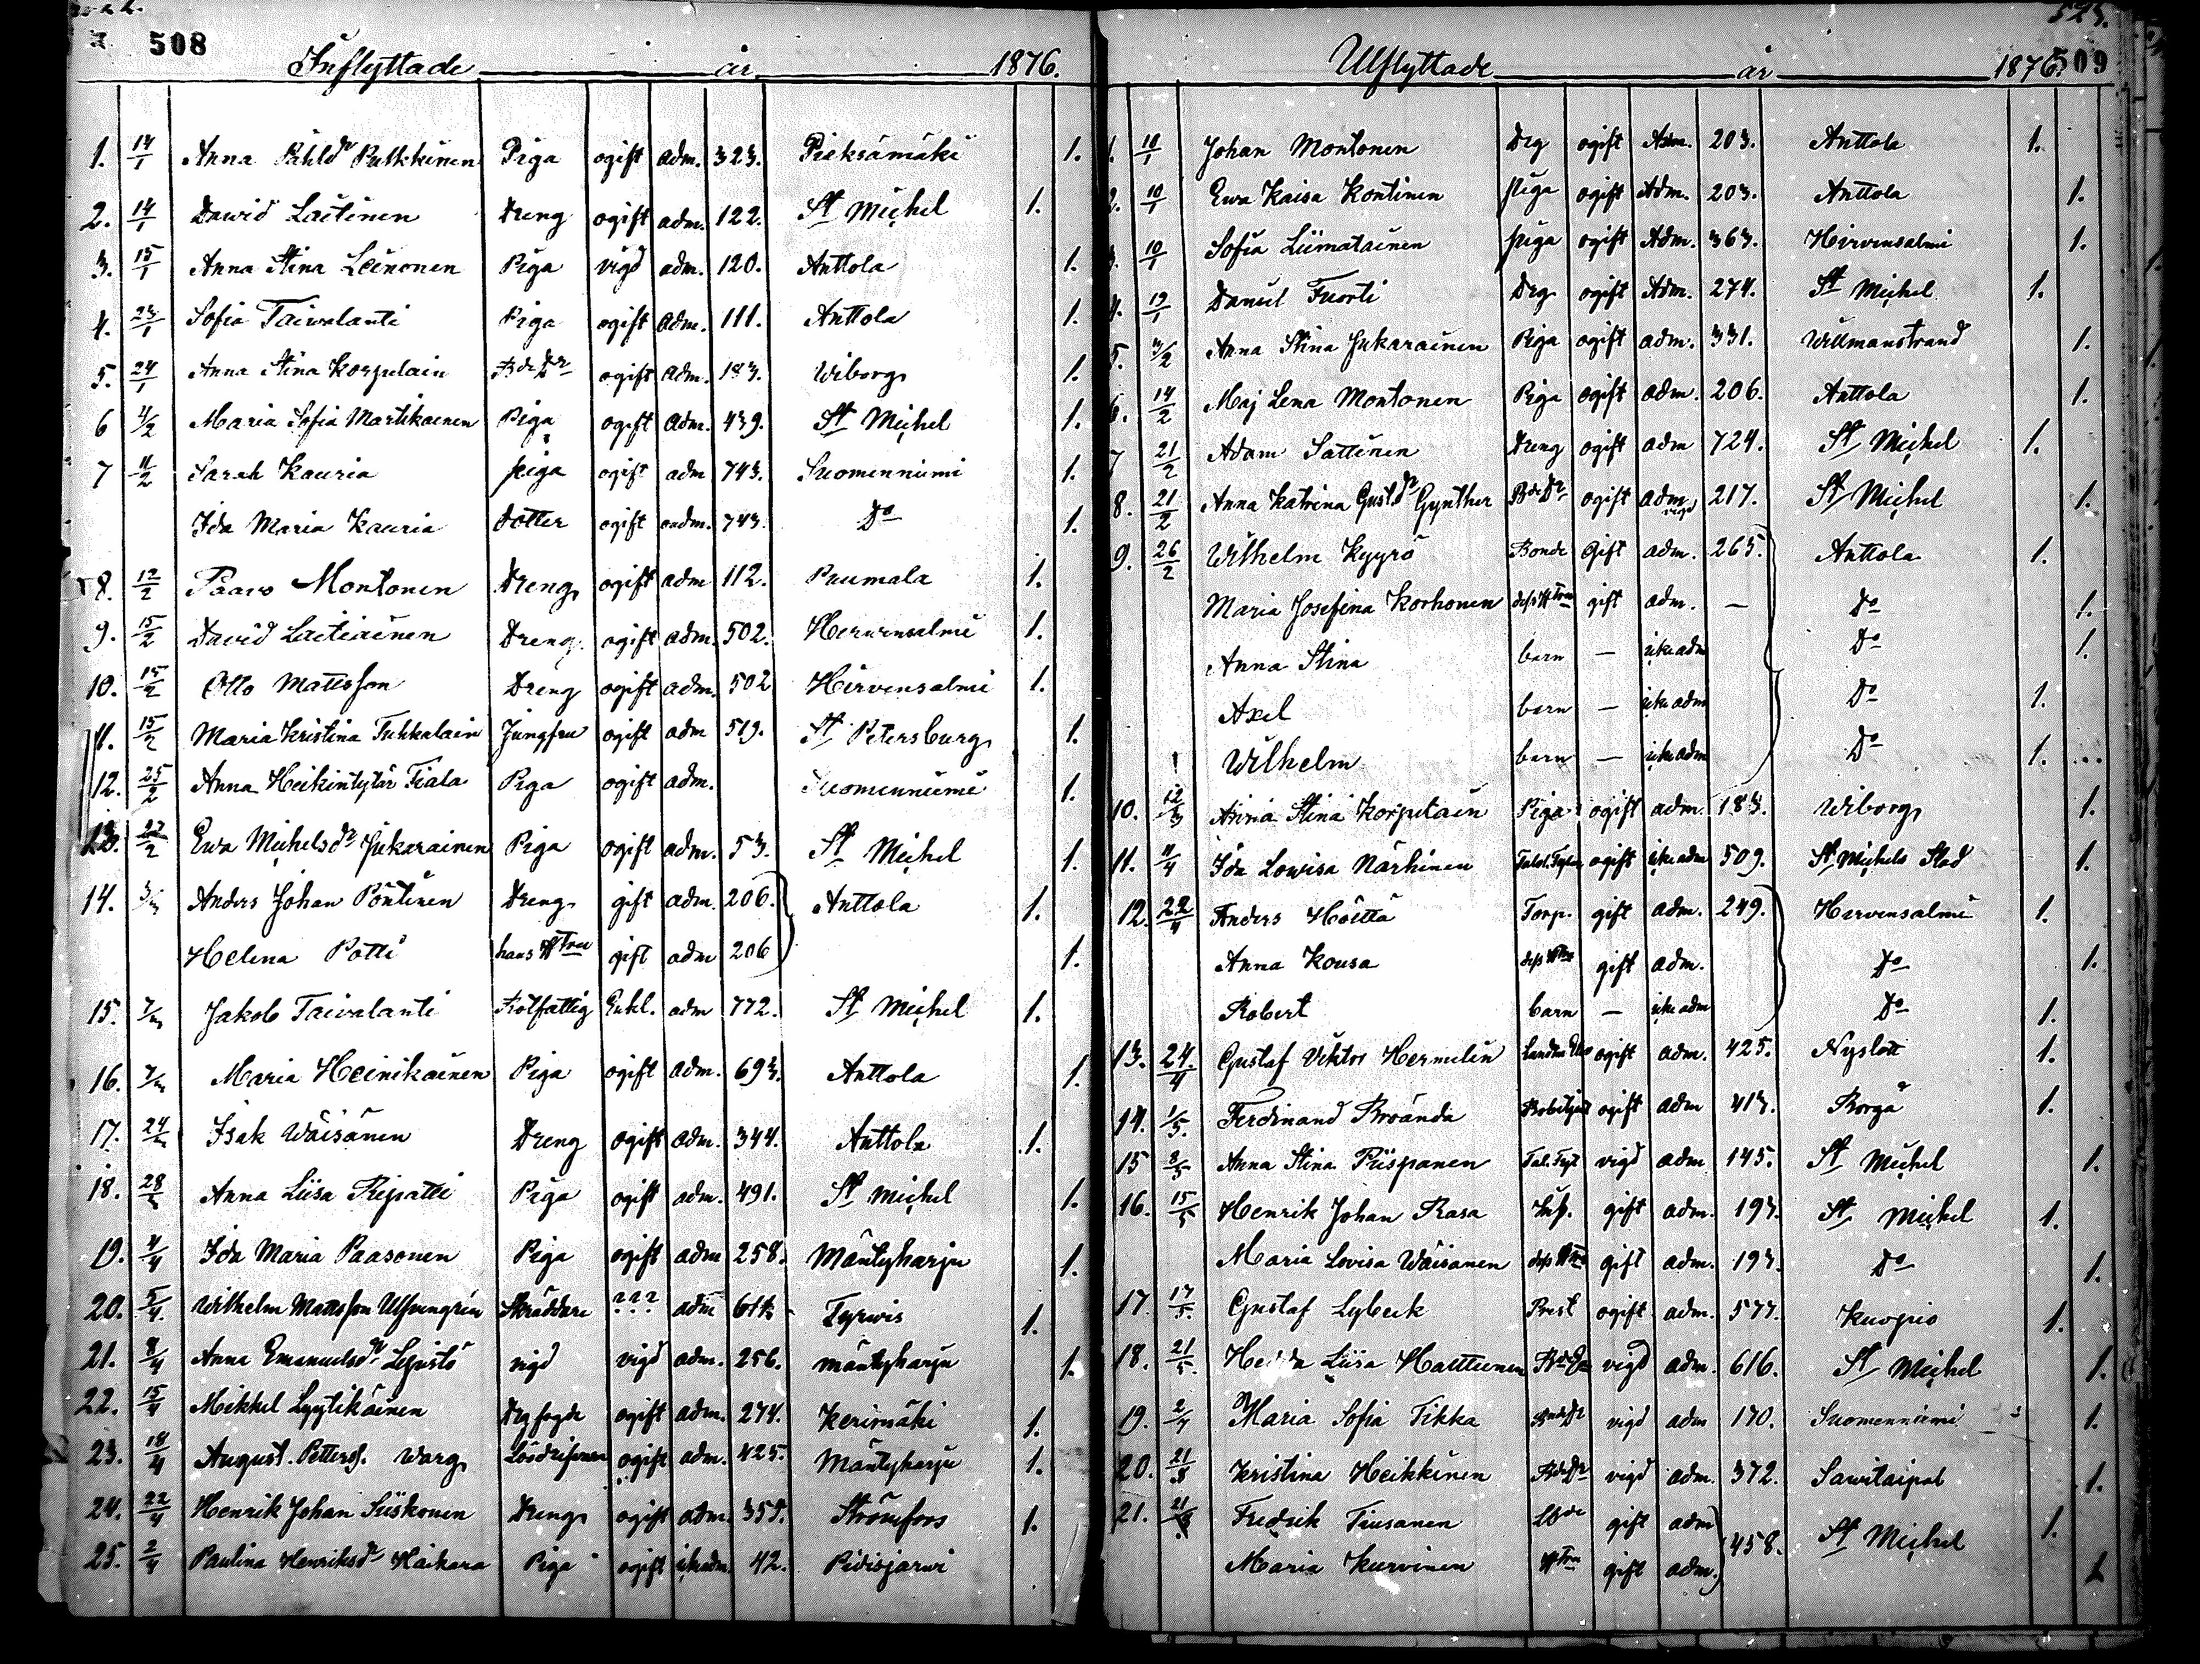 508
Inflyttade år 1876.
1. 14/1 Anna Påhlsdr Pulkkinen Piga ogift adm. 323. Pieksämäki 1.
2. 14/1 Dawid Laitinen Dreng ogift adm. 122. St Michel 1.
3. 15/1 Anna Stina Leinonen Piga vigd adm. 120. Anttola 1.
4. 23/1 Sofia Taivalanti Piga ogift adm. 111. Anttola 1.
5. 24/1 Anna Stina Korpulain BdeDr ogift adm. 183. Wiborg 1.
6 4/2 Maria Sofia Martikainen Piga ogift adm. 439. St Michel 1.
7 11/2 Sarah Kauria piga ogift adm 743. Suomenniemi 1.
Ida Maria Kauria dotter ogift oadm. 743. Do 1.
8. 12/2 Paavo Montonen Dreng ogift adm 112. Puumala 1.
9. 15/2 David Laitiainen Dreng ogift adm. 502. Hirvensalmi 1.
10. 15/2 Otto Mattsson Dreng ogift adm. 502 Hirvensalmi 1.
11. 15/2 Maria Kristina Tuhkalain Jungfru ogift adm 519. St Petersburg 1.
12. 25/2 Anna Heikintytär Tiala Piga ogift adm. Suomenniemi 1.
13. 27/2 Ewa Michelsdr Jukarainen Piga ogift adm. 53. St Michel 1.
14. 3/3 Anders Johan Pöntinen Dreng gift adm. 206. Anttola 1.
Helena Pötti hans Hstru gift adm 206 1.
15. 7/3 Jakob Taivalanti Rotfattig Enkl. adm 772. St Michel 1.
16. 7/3 Maria Heinikainen Piga ogift adm. 693. Anttola 1.
17. 24/3 Isak Wäisänen Dreng ogift adm. 344. Anttola 1.
18. 28/3 Anna Liisa Ripatti Piga ogift adm. 491. St Michel 1.
19. 4/4 Ida Maria Paasonen Piga ogift adm 258. Mäntyharju 1.
20. 5/4. Wilhelm Mattsson Skräddare ??? adm Tyrwis 1.
21. 8/4 Anna Emanuelsdr Lepistö vigd vigd adm. 256. Mäntyharju 1.
22. 15/4 Mikkel Lyytikäinen Drgfogde ogift adm. 274. Kerimäki 1.
23. 18/4 August Petters. Warg ogift adm. 425. Mäntyharju 1.
24. 22/4 Henrik Johan Siiskonen Dreng ogift adm. 358. Strömfors 1.
25. 2/4 Paulina Henriksdr Haikara Piga ogift ickeadm. 42. Pidisjärwi
523.
509
Utflyttade år 1876.
1. 10/1 Johan Montonen Drg ogift Adm. 203. Anttola 1.
2. 10/1 Ewa Kaisa Kontinen piga ogift Adm. 203. Anttola 1.
3. 10/1 Sofia Liimatainen piga ogift Adm. 363. Hirvensalmi 1.
4. 19/1 Daniel Tuorti Drg ogift Adm. 274. St Michel 1.
5. 3/2 Anna Stina Jukarainen Piga ogift adm. 331. Willmanstrand 1.
6. 14/2 Maj Lena Montonen Piga ogift adm. 206. Anttola 1.
7 21/2 Adam Sattinen Dreng ogift adm 724. St Michel 1.
8. 21/2 Anna Katrina Gust.dr Gynther BdeDr ogift adm vigd 217. St Michel 1.
9. 26/2 Wilhelm Kyyrö Bonde Gift adm. 265. Anttola 1.
Maria Josefina Korhonen dess Hstru gift adm. — Do 1.
Anna Stina barn — icke adm Do 1.
Axel barn — icke adm Do 1.
Wilhelm barn — icke adm Do 1.
10. 12/3 Anna Stina Korpulain Piga ogift adm. 183. Wiborg 1.
11. 11/4 Ida Lowisa Närhinen ogift icke adm 509. St Michels Stad 1.
12. 22/4 Anders Höittä Torp. gift adm. 249. Hirvensalmi 1.
Anna Kousa dess Hstru gift adm. Do 1.
Robert barn — icke adm Do 1.
13. 24/4 Gustaf Viktor Hermelin ogift adm. 425. Nyslott 1.
14. 1/5. Ferdinand ogift adm 413. Borgå 1.
15 8/5 Anna Stina Piispanen vigd adm 145. St Michel 1.
16. 15/5 Henrik Johan Rasa Inh. gift adm. 193. St Michel 1.
Maria Lovisa Wäisänen dess Hstru gift adm. 193. Do 1.
17. 17/5. Gustaf Lybeck Prest ogift adm. 577. Kuopio 1.
18. 21/5. Hedda Liisa Hatttunen BdeDr vigd adm. 616. St Michel 1.
19. 2/7 Maria Sofia Tikka BdeDr vigd adm 170. Suomenniemi 1.
20. 21/8 Kristina Heikkinen BdeDr vigd adm. 372. Sawitaipal 1.
21. Fredrik Tiusanen gift adm 458. St Michel 1.
Maria Kurvinen Hstru gift adm. 1